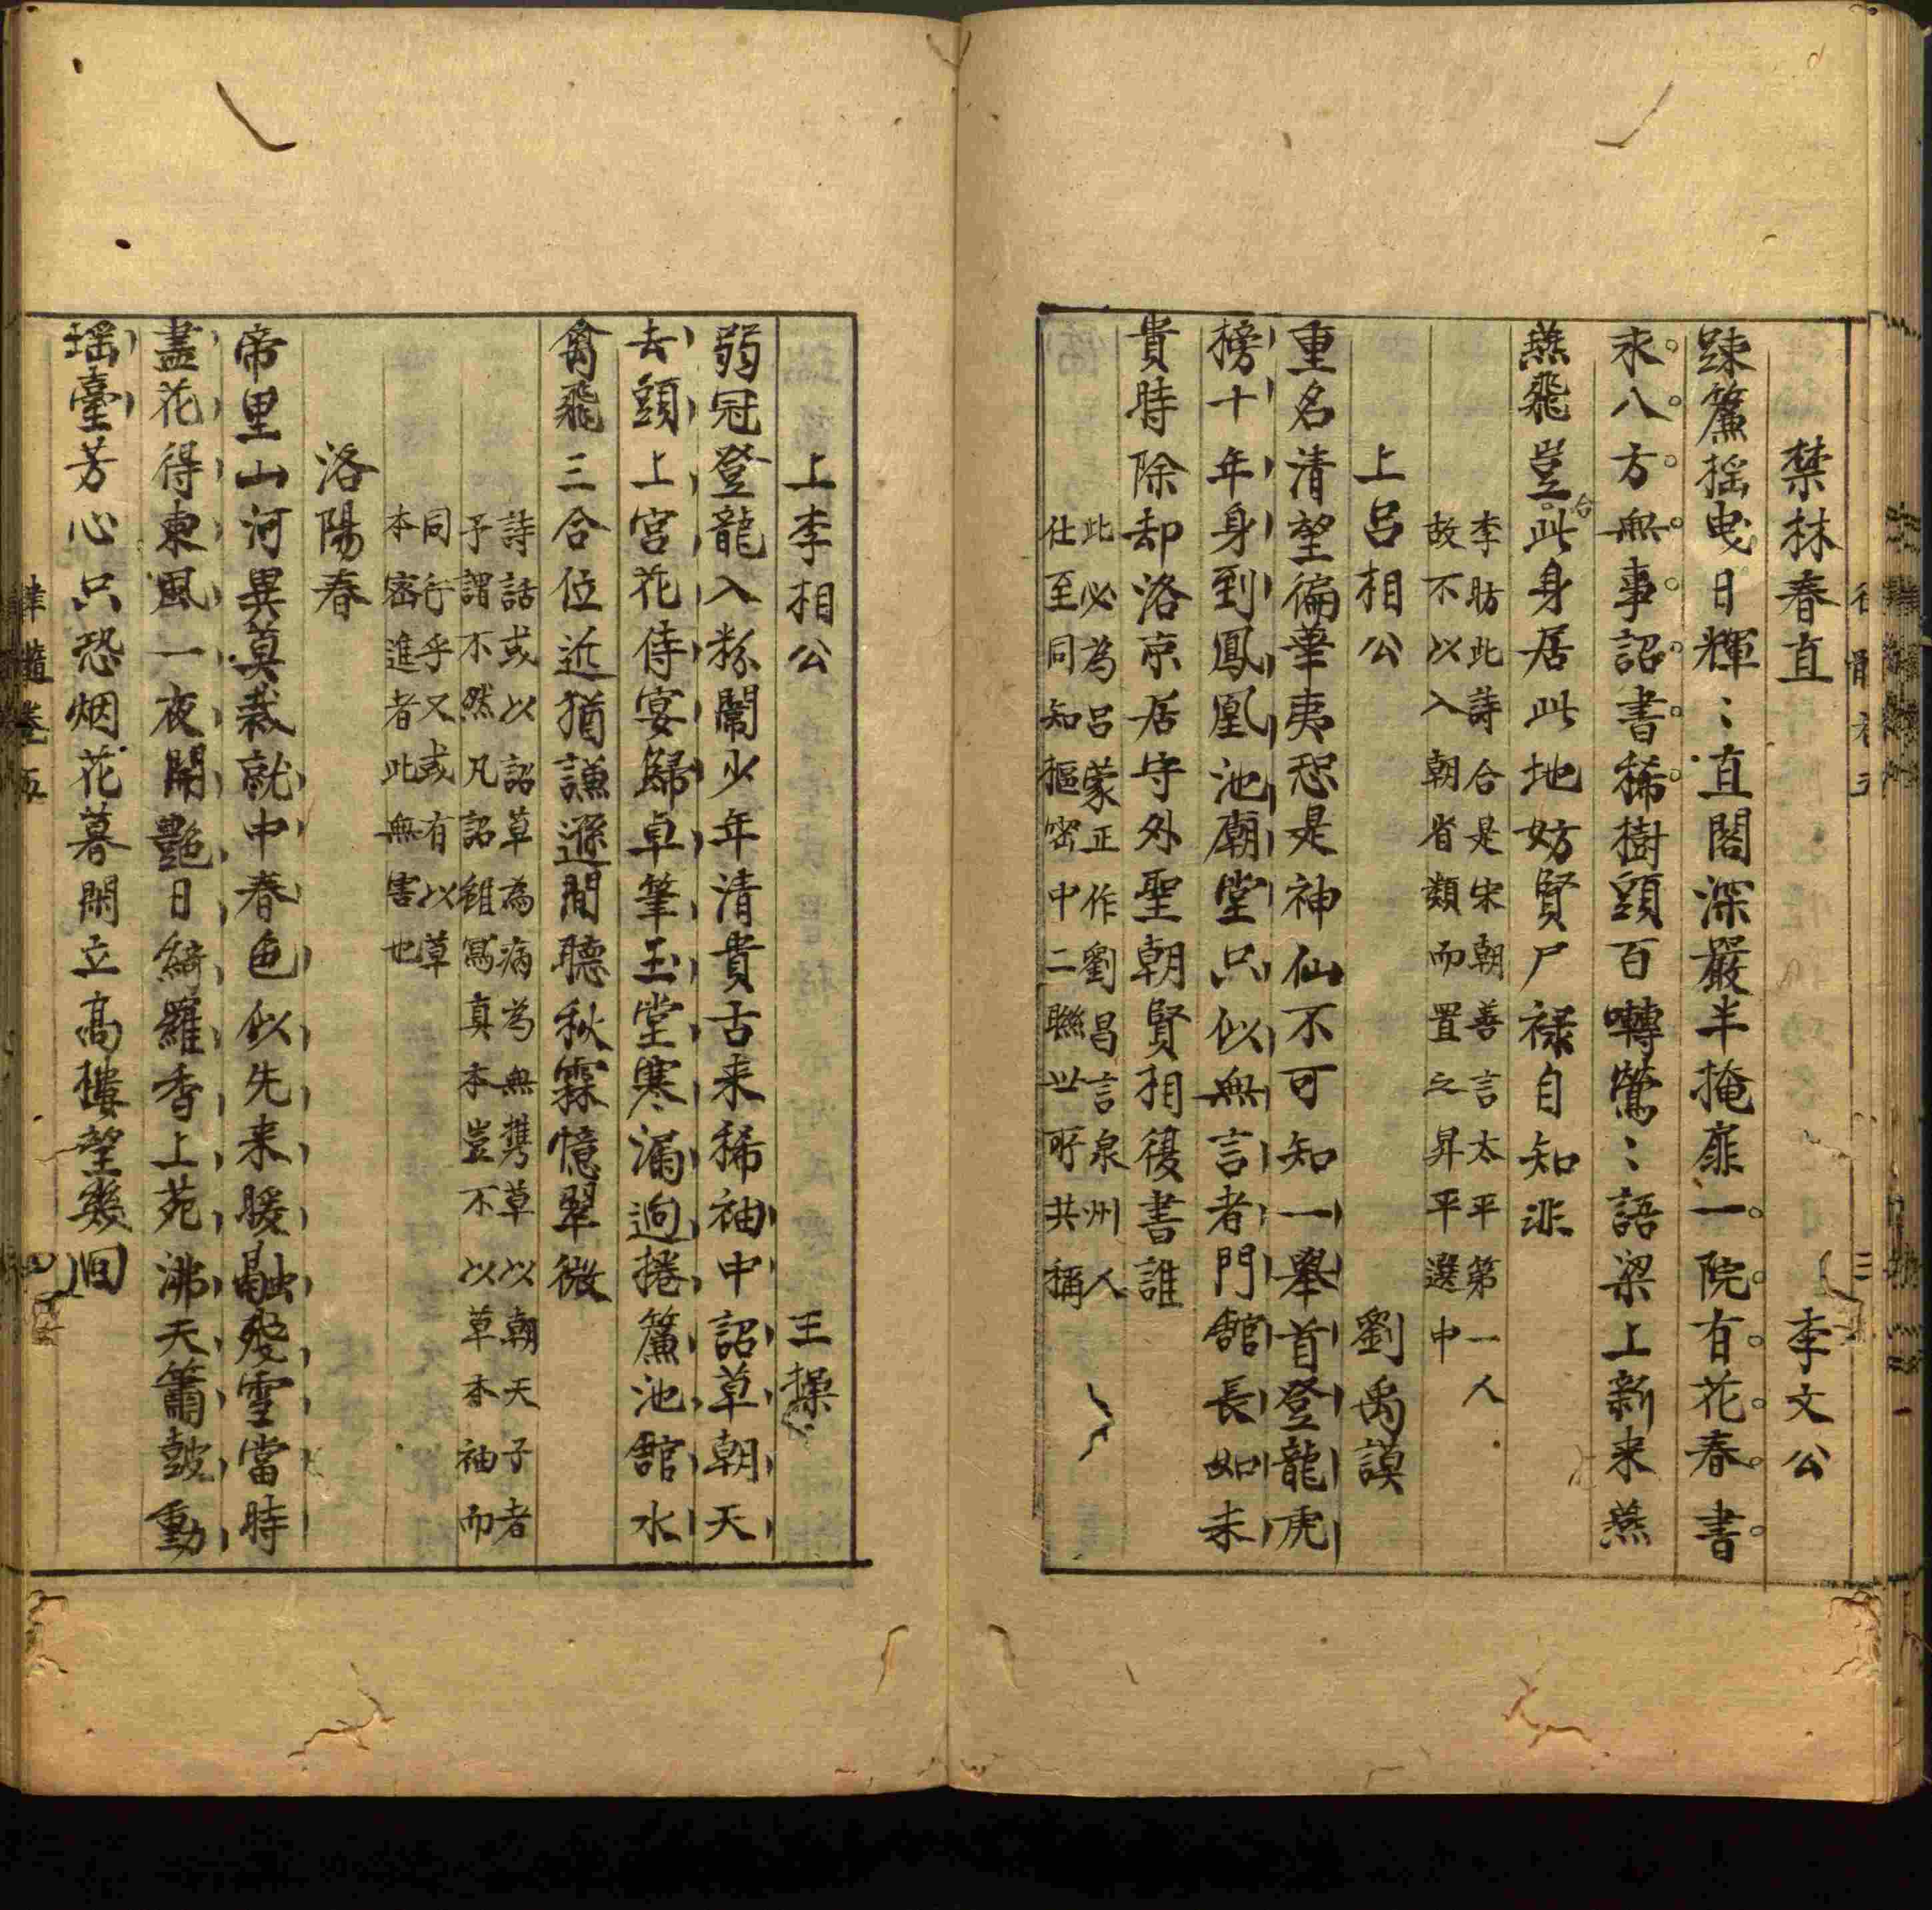 禁林春直　李文公
踈簾揺曳日輝〻直閣深嚴半掩扉一院有花春晝
永八方無事詔書稀樹頭百囀鶯〻語梁上新来燕
燕飛豈合此身居此地妨賢尸禄自知非
李昉此詩合是宋朝善言太平第一人
故不以入朝省類而置之昇平選中
上呂相公　劉禹謨
重名清望徧華夷恐是神仙不可知一舉首登龍虎
榜十年身到鳳凰池廟堂只似無言者門館長如未
貴時除却洛京居守外聖朝賢相復書誰
此必為呂蒙正作劉昌言泉州人
仕至同知樞密中二聯世所共稱
上李相公　王操
弱冠登龍入粉闈少年清貴古来稀袖中詔草朝天
去頭上宮花侍宴歸卓筆玉堂寒漏逈捲簾池舘水
禽飛三合位近猶謙遜閒聴秋霖憶翠微
詩話或以詔草為病為無携草以朝天子者
予謂不然凡詔雖寫真本豈不以草本袖而
同行乎又或有以草
本密進者此無害也
洛陽春
帝里山河異莫裁就中春色似先来暖融殘雪當時
盡花得東風一夜開艷日綺羅香上苑沸天簫鼓動
瑶臺芳心只恐烟花暮閑立高樓望幾回
律髓卷五
四